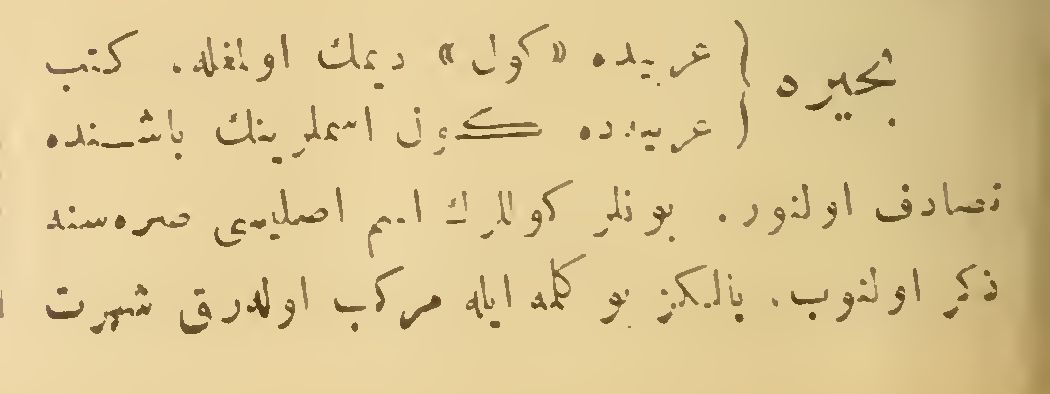 بحيره } عربيده «كول» ديمك اولمغله، كتب
عربيه‌ده كول اسملرينك باشنده
تصادف اولنور. بونلر كوللرك اسم اصليسى صره‌سنده
ذكر اولنوب، يالكز بو كلمه ايله مركب اوله‌رق شهرت